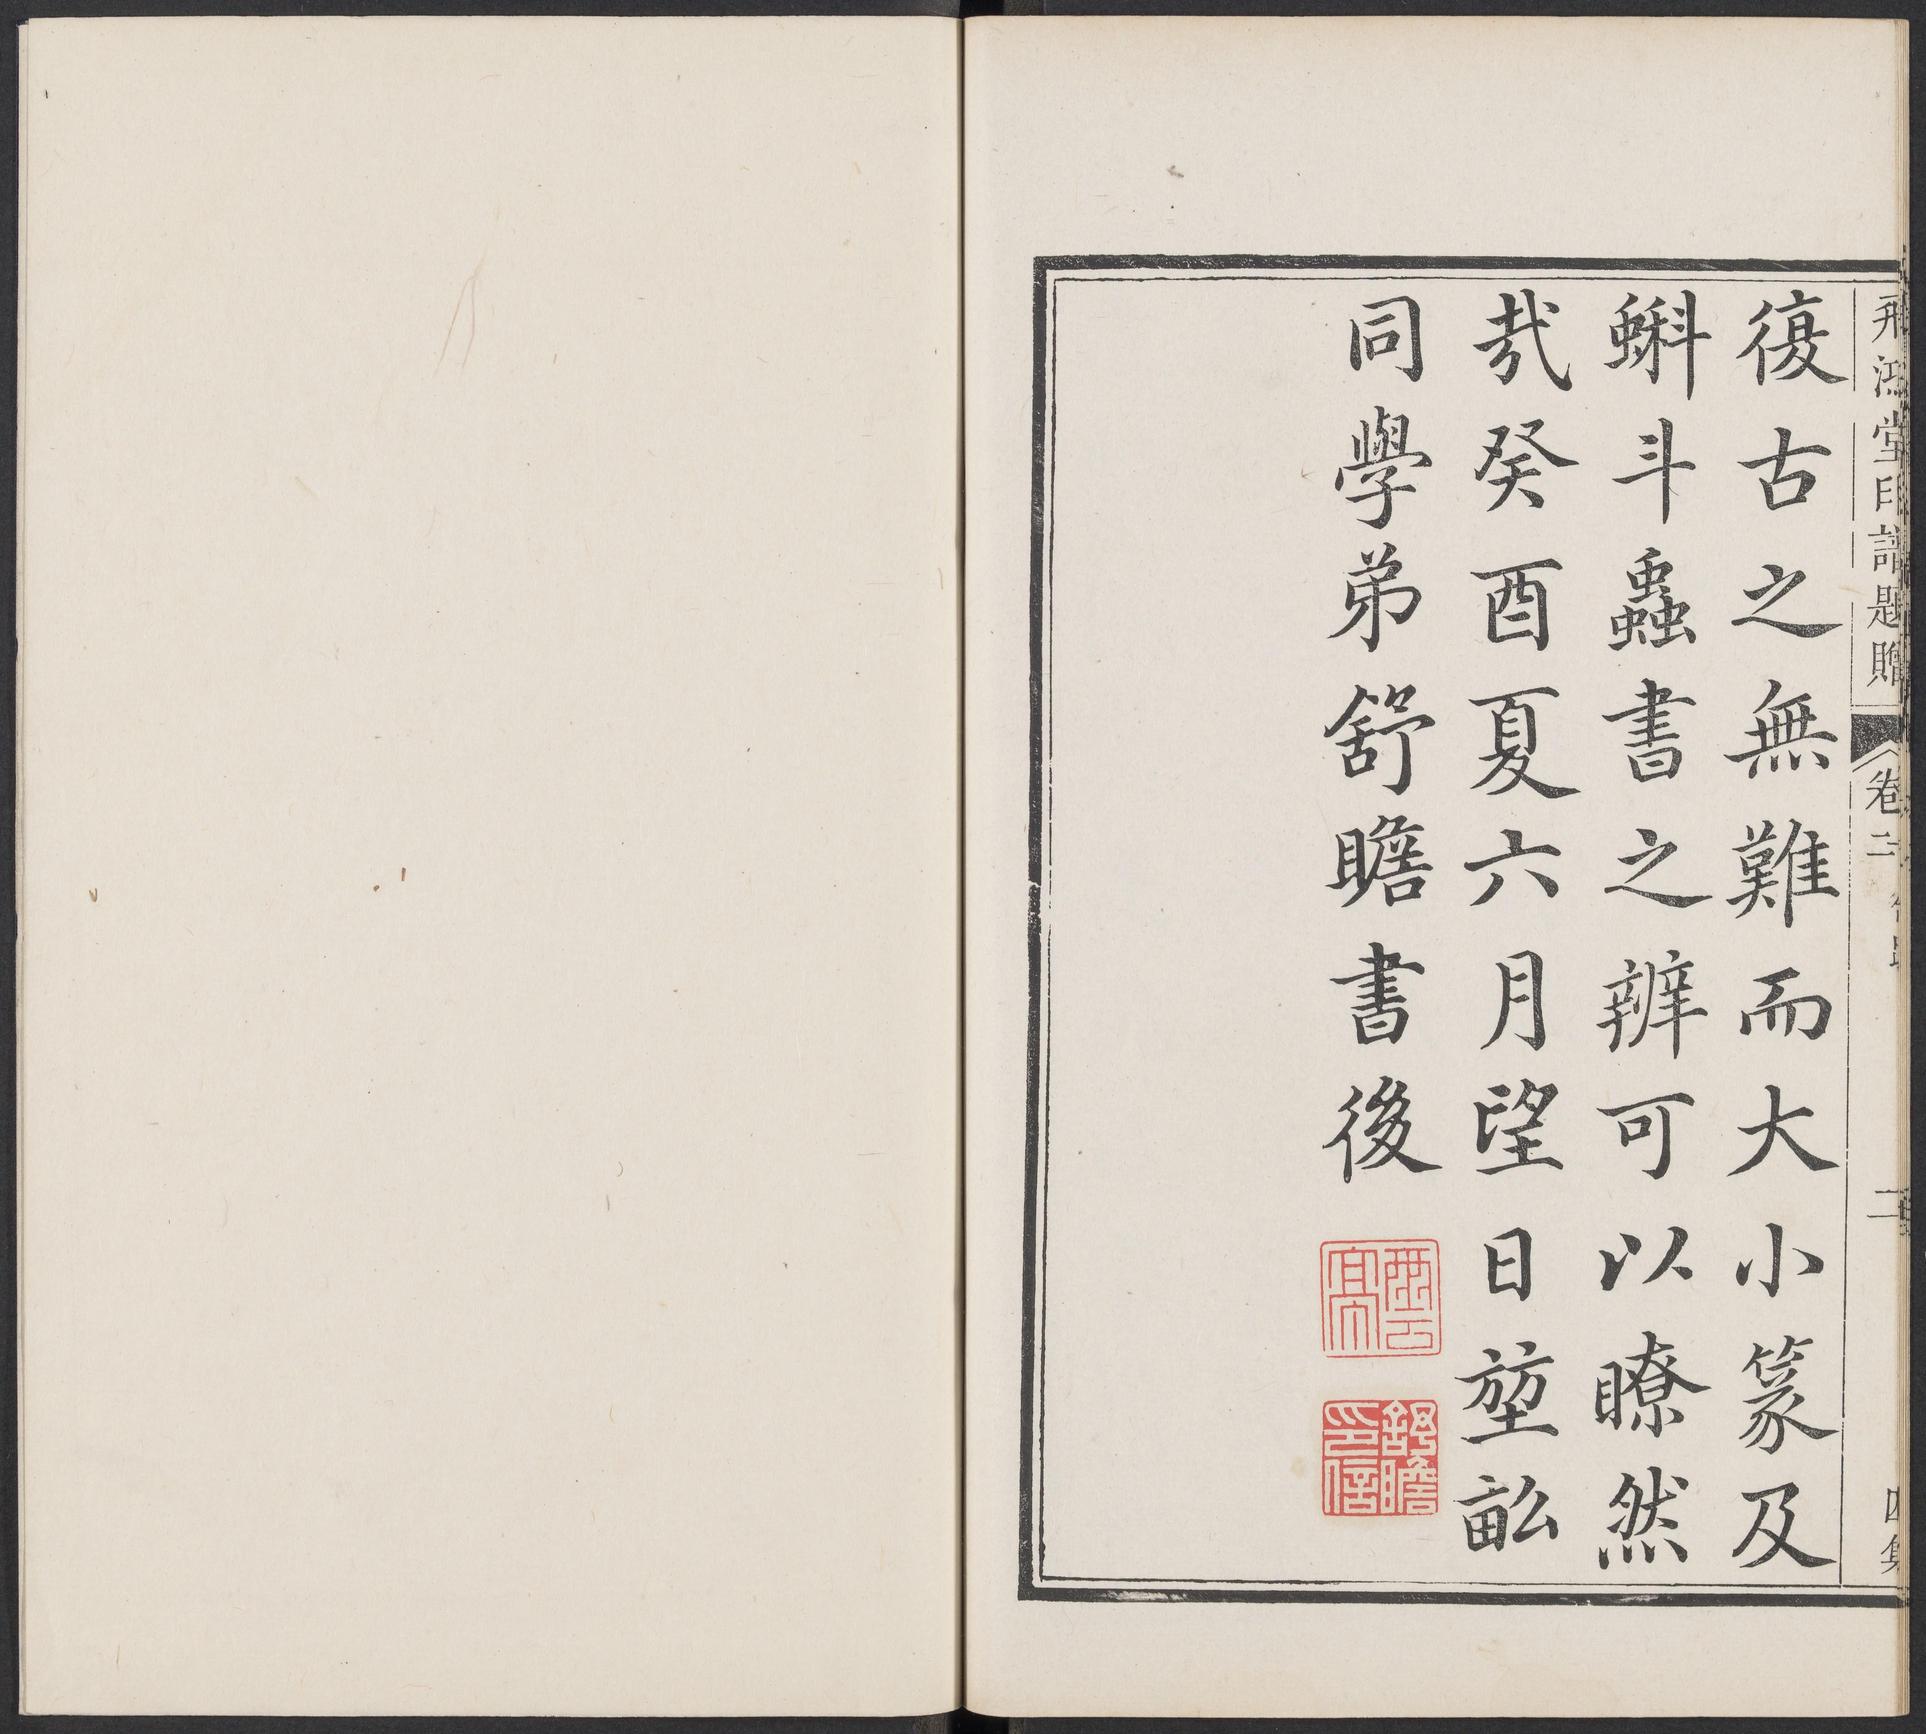 飛鴻堂印譜題贈
卷二
二
四集
復古之無難而大小篆及
蝌斗蟲書之辨可以瞭然
哉癸酉夏六月望日堃
同學弟舒瞻書後
雲亭
舒瞻印信